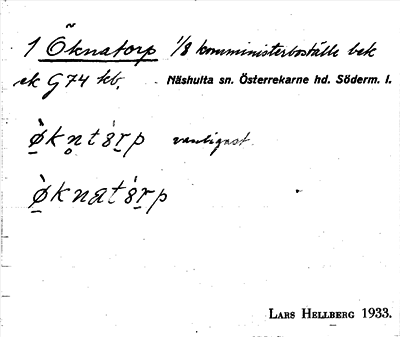 1 Öknatorp 1/8 komministerboställe bek
ek G74 kb. Näshulta sn. Österrekarne hd. Söderm. l.
ø̀kn̥tórp vanligast.
ø̀knatórp
LARS HELLBERG 1933.